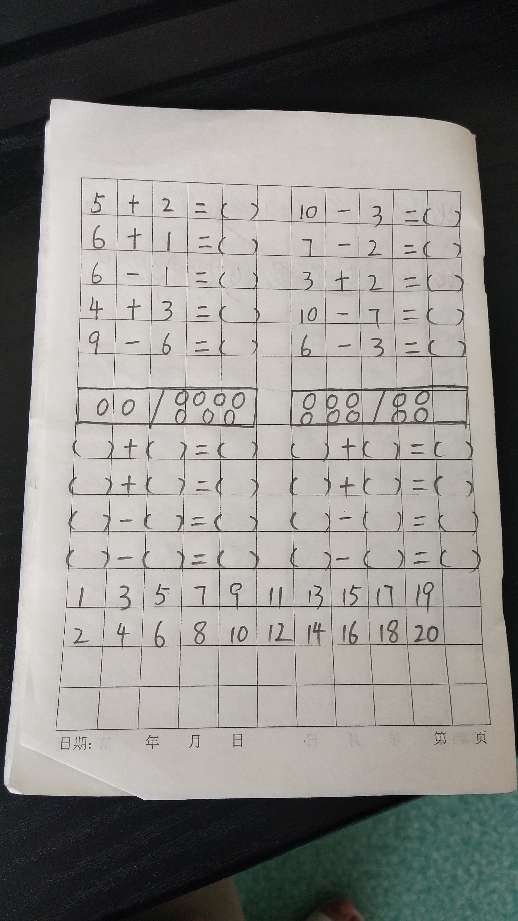 5 + 2 = ( ) 10 - 3 = ( )
6 + 1 = ( ) 7 - 2 = ( )
6 - 1 = ( ) 3 + 2 = ( )
4 + 3 = ( ) 10 - 7 = ( )
9 - 6 = ( ) 6 - 3 = ( )
( ) + ( ) = ( ) ( ) + ( ) = ( )
( ) + ( ) = ( ) ( ) + ( ) = ( )
( ) - ( ) = ( ) ( ) - ( ) = ( )
( ) - ( ) = ( ) ( ) - ( ) = ( )
1 3 5 7 9 11 13 15 17 19
2 4 6 8 10 12 14 16 18 20
日期: 年 月 日 第 页